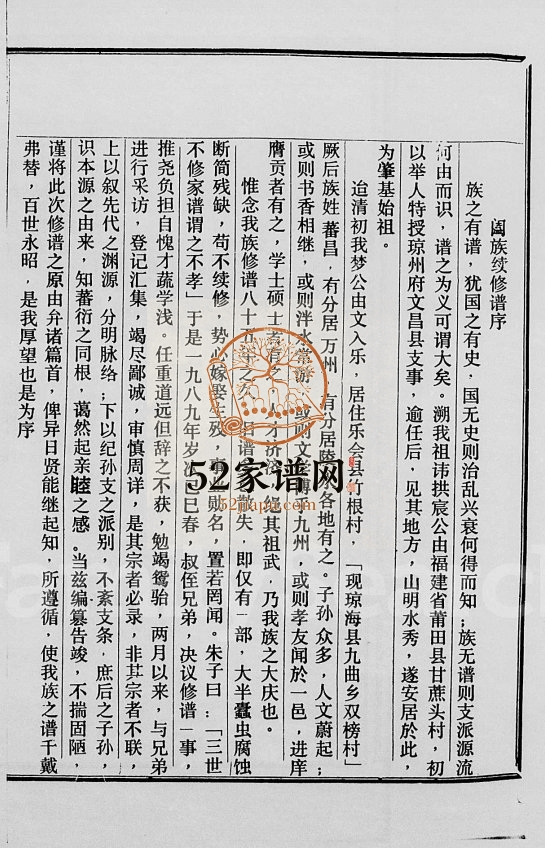 阖族续修谱序
族之有谱，犹国之有史，国无史则治乱兴衰何得而知；族无谱则支派源流
何由而识，谱之为义可谓大矣。溯我祖讳拱宸公由福建省莆田县甘蔗头村，初
以举人特授琼州府文昌县支事，逾任后，见其地方，山明水秀，遂安居於此，
为肇基始祖。
迨清初我梦公由文入乐，居住乐会县竹根村，「现琼海县九曲乡双榜村」
厥后族姓蕃昌，有分居万州，有分居陵水各地有之。子孙众多，人文蔚起；
或则书香相继，或则泮水常游，或则文章博于九州，或则孝友闻於一邑，进庠
膺贡者有之，学士硕士者有之，人才济济，绳其祖武，乃我族之大庆也。
惟念我族修谱八十 年之久，旧谱 散失，即仅有一部，大半蠹虫腐蚀
断简残缺，苟不续修，势必嫁娶生殁， 勋名，置若罔闻。朱子曰：「三世
不修家谱谓之不孝」于是一九八九年岁次己巳春，叔侄兄弟，决议修谱一事，
推尧负担自愧才蔬学浅。任重道远但辞之不获，勉竭鸳骀，两月以来，与兄弟
进行采访，登记汇集，竭尽鄙诚，审慎周详，是其宗者必录，非其宗者不联，
上以叙先代之渊源，分明脉络；下以纪孙支之派别，不紊支条，庶后之子孙，
识本源之由来，知蕃衍之同根，蔼然起亲睦之感。当兹编篡告竣，不揣固陋，
谨将此次修谱之原由弁诸篇首，俾异日贤能继起知，所遵循，使我族之谱千戴
弗替，百世永昭，是我厚望也是为序
52家谱网
52jiapu.com